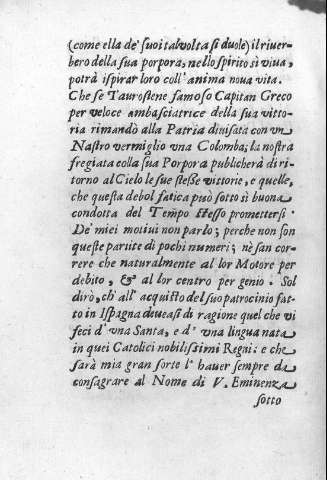 (come ella de' suoi talvolta si duole) il river-
bero della sua porpora, nello spirito sì viva,
potrà ispirar loro coll' anima nova vita.
Che se Taurostene famoso Capitan Greco
per veloce ambasciatrice della sua vitto-
ria rimandò alla Patria divisata con un
Nastro vermiglio una Colomba; la nostra
fregiata colla sua Porpora publicherà di ri-
torno al Cielo le sue stesse vittorie, e quelle,
che questa debol fatica può sotto sì buona
condotta del Tempo stesso promettersi.
De' miei motivi non parlo; perche non son
queste partite di pochi numeri; nè san cor-
rere che naturalmente al lor Motore per
debito, & al lor centro per genio. Sol
dirò, ch' all' acquisto del suo patrocinio fat-
to in Ispagna deveasi di ragione quel che vi
feci d' una Santa, e d' una lingua nata
in quei Catolici nobilissimi Regni: e che
sarà mia gran sorte l' haver sempre da
consagrare al Nome di V. Eminenza
sotto